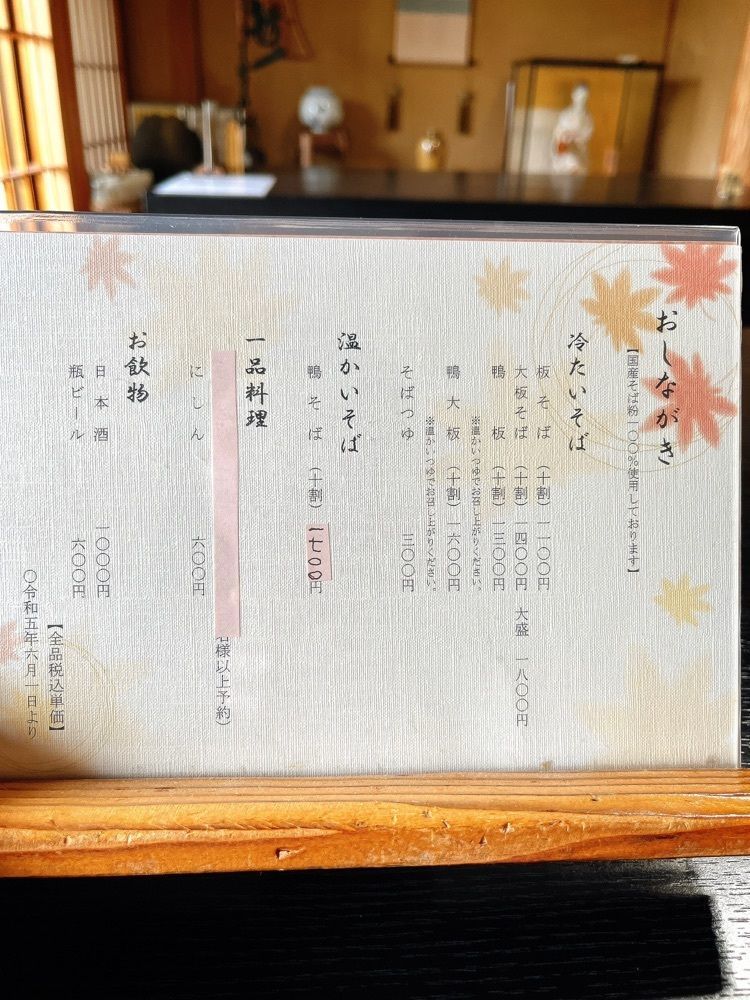 おしながき
【国産そば粉一〇〇%使用しております】
冷たいそば
板そば （十割） 一一〇〇円
大板そば （十割） 一四〇〇円 大盛 一八〇〇円
鴨板 （十割） 一三〇〇円
※温かいつゆでお召し上がりください。
鴨大板 （十割） 一六〇〇円
※温かいつゆでお召し上がりください。
そばつゆ 三〇〇円
温かいそば
鴨そば （十割） 一七〇〇円
一品料理
名様以上予約）
にしん 六〇〇円
お飲物
日本酒 一〇〇〇円
瓶ビール 六〇〇円
【全品税込単価】
〇令和五年六月一日より